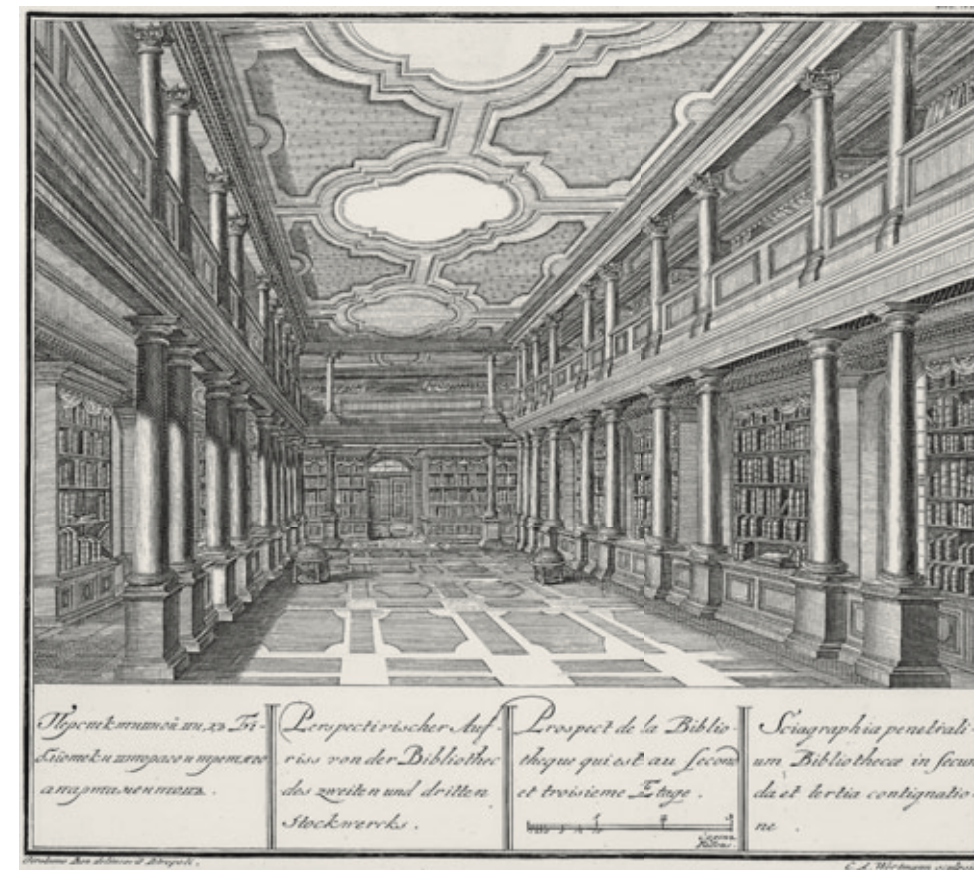 Перспективной видъ Би-
блїотеки втораго и третяго
апартаментовъ.
Perspectivischer Auf-
riss von der Bibliothec
des zweiten und dritten
Stockwercks.
Prospect de la Biblio-
theque qui est au second
et troisieme Etage.
Sciagraphia penetrali-
um Bibliothecæ in secun
da et tertia contignatio-
ne.
Girolamo Bon delineavit Petropoli.
C. A. Wortmann sculpsit